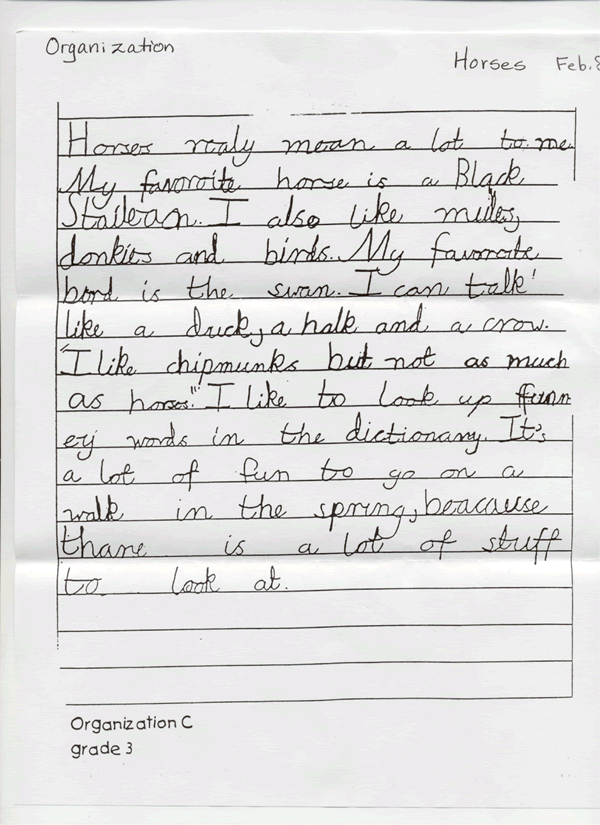 Organization
Horses Feb.
Horses realy mean a lot to me.
My favoroite horse is a Black
Stailean. I also like mules,
donkies and birds. My favoroite
bird is the swan. I can talk
like a duck, a halk and a crow.
"I like chipmunks but not as much
as horses." I like to look up funn
ey words in the dictionary. It's
a lot of fun to go on a
walk in the spring, beacause
thare is a lot of stuff
to look at.
Organization C
grade 3